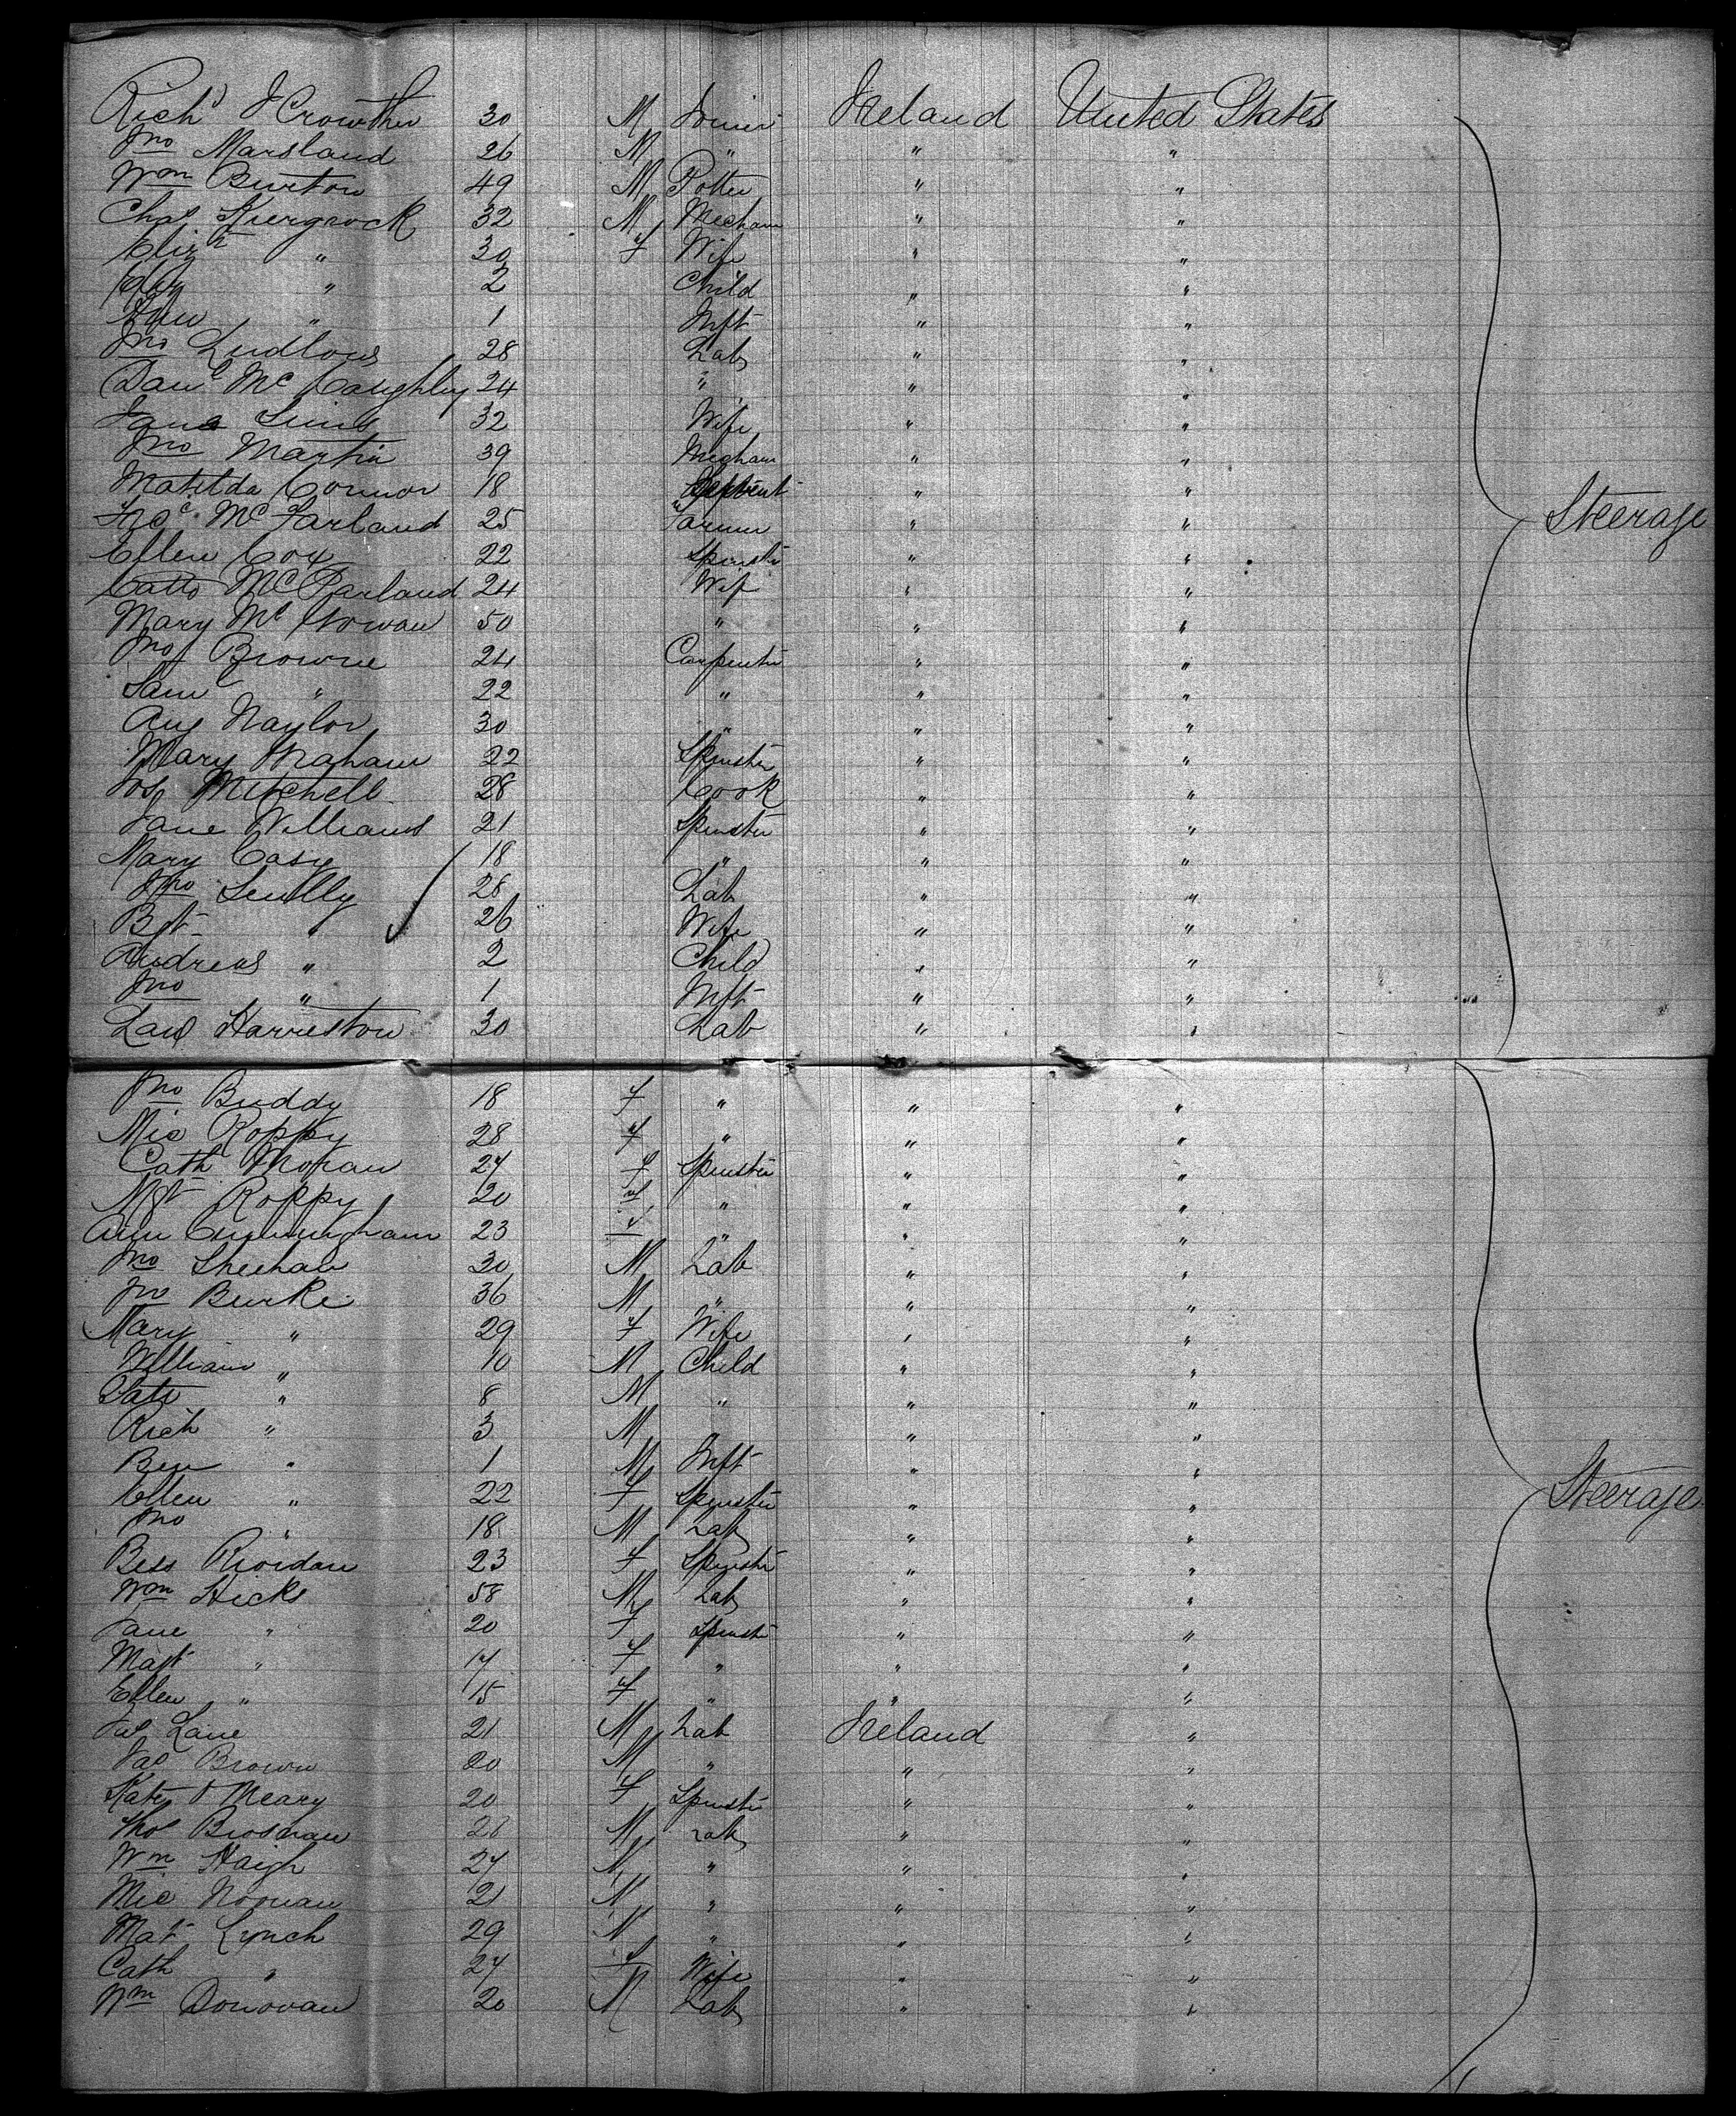 Richd J Crowther 30 M Joiner Ireland United States
Jno Marsland 26 M " " "
Wm Burton 49 M Potter " "
Chas 32 M Mecham " "
Eliz " 30 F Wife " "
" 2 Child " "
" 1 Inft " "
Jno Ludlows 28 Lab " "
Danl Mc Caughley 24 " " "
Jane Sims 32 Wife " "
Jno Martin 39 Mecham " "
Matilda Connor 18 " "
Mc Farland 25 Farmer " " Steerage
Ellen Cox 22 Spinster " "
Cath Mc Farland 24 Wife " "
Mary Mc Gowan 50 " " "
Jno Browne 24 Carpenter " "
Saml " 22 " " "
Aug Naylor 30 " " "
Mary Graham 22 Spinster " "
Jos Mitchell 28 Cook " "
Jane Williams 21 Spinster " "
Mary Casey 18 " " "
Jno Scully 28 Lab " "
Bgt " 26 Wife " "
Andreas " 2 Child " "
Jno " 1 Inft " "
Harrieston 30 Lab " "
Jno Buddy 18 F " " "
Mic Roppy 28 F " " "
Cath Moran 27 F Spinster " "
Mgt Roppy 20 F " " "
Ann Cunningham 23 F " " "
Jno Sheehan 30 M Lab " "
Jno Burke 36 M " " "
Mary " 29 F Wife " "
William " 10 M Child " "
Patk " 8 M " " "
Rich " 3 M " " "
Ben " 1 M Inft " "
Ellen " 22 F Spinster " " Steerage
Jno " 18 M Lab " "
Bess Riordan 23 F Spinster " "
Wm Hicks 58 M Lab " "
Jane " 20 F Spinster " "
Magt " 17 F " " "
Ellen " 15 F " " "
Jas Lane 21 M Lab Ireland "
Jas Brown 20 M " " "
Kate O Meary 20 F Spinster " "
Thos Brosnan 28 M Lab " "
Wm Haigh 27 M " " "
Mic Noonan 21 M " " "
Mat Lynch 29 M " " "
Cath " 27 F Wife " "
Wm Donovan 20 M Lab " "